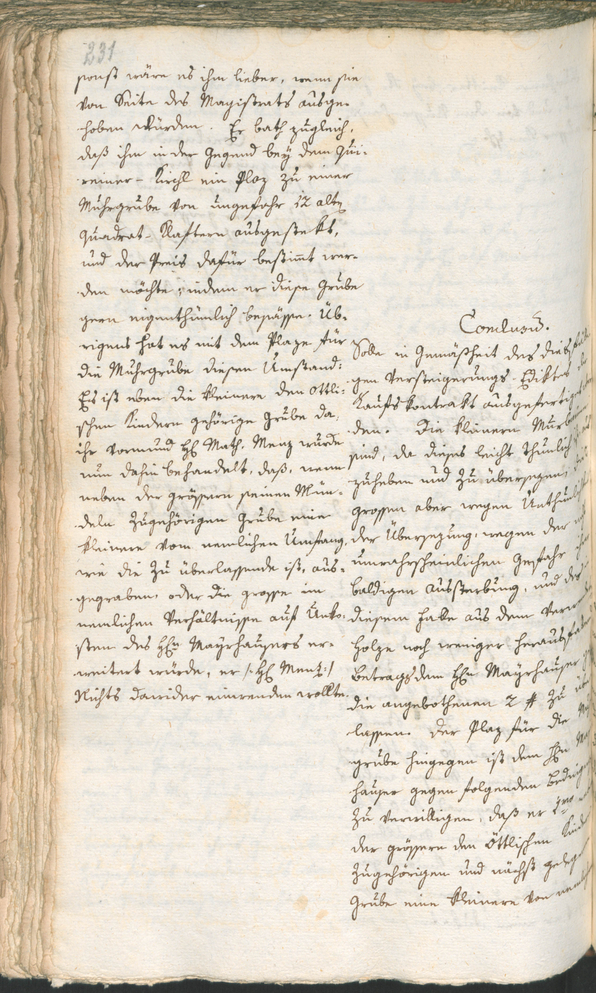 231
sonst wäre es ihm lieber, wenn sie
von Seite des Magistrats ausge-
hoben würden. Er bath zugleich,
daß ihm in der Gegend bey dem Qui-
reiner-Kirchl ein Plaz zu einer
Muhrgrube von ungefahr 12 alten
Quadrat-Klaftern ausgestekt,
und der Preis dafür bestimmt wer-
den möchte; indem er diese Grube
gern eigenthümlich besässe. Üb-
rigens hat es mit dem Plaze für
die Muhrgrube diesen Umstand:
Es ist eben die kleinere den Ottli-
schen Kindern gehörige Grube da;
ihr Vormund H. Math. Menz würde
nun dahin behandelt, daß, wenn
neben der grössern seinen Mün-
deln zugehörigen Grube eine
kleinere vom nemlichen Umfang,
wie die zu überlassende ist, aus-
gegraben, oder die grosse im
nemlichen Verhältnisse auf Unko-
sten des H. Mayrhausers er-
weitert würde, er /: H. Menz :/
Nichts dawider einwenden wollte.
Conclusum.
Solle in Gemäßheit des
gen Versteigerungs-Edikts
Kaufskontrakt ausgefertiget
den. Die kleinern
sind, da dieses leicht thunlich
zuheben und zu übersezen,
grossen aber wegen
der Übersezung, wegen der
unwahrscheinlichen Gefahr
baldigen Aussterbung, und
diesem falle aus dem
Holze noch weniger
Betrags dem H. Mayrhauser
die angebothenen 2 f zu
lassen. Der Plaz für die
grube hingegen ist dem H.
hauser gegen folgenden
zu verwilligen, daß er
der grössern den Ottlischen
zugehörigen und nächst
Grube eine kleinere von